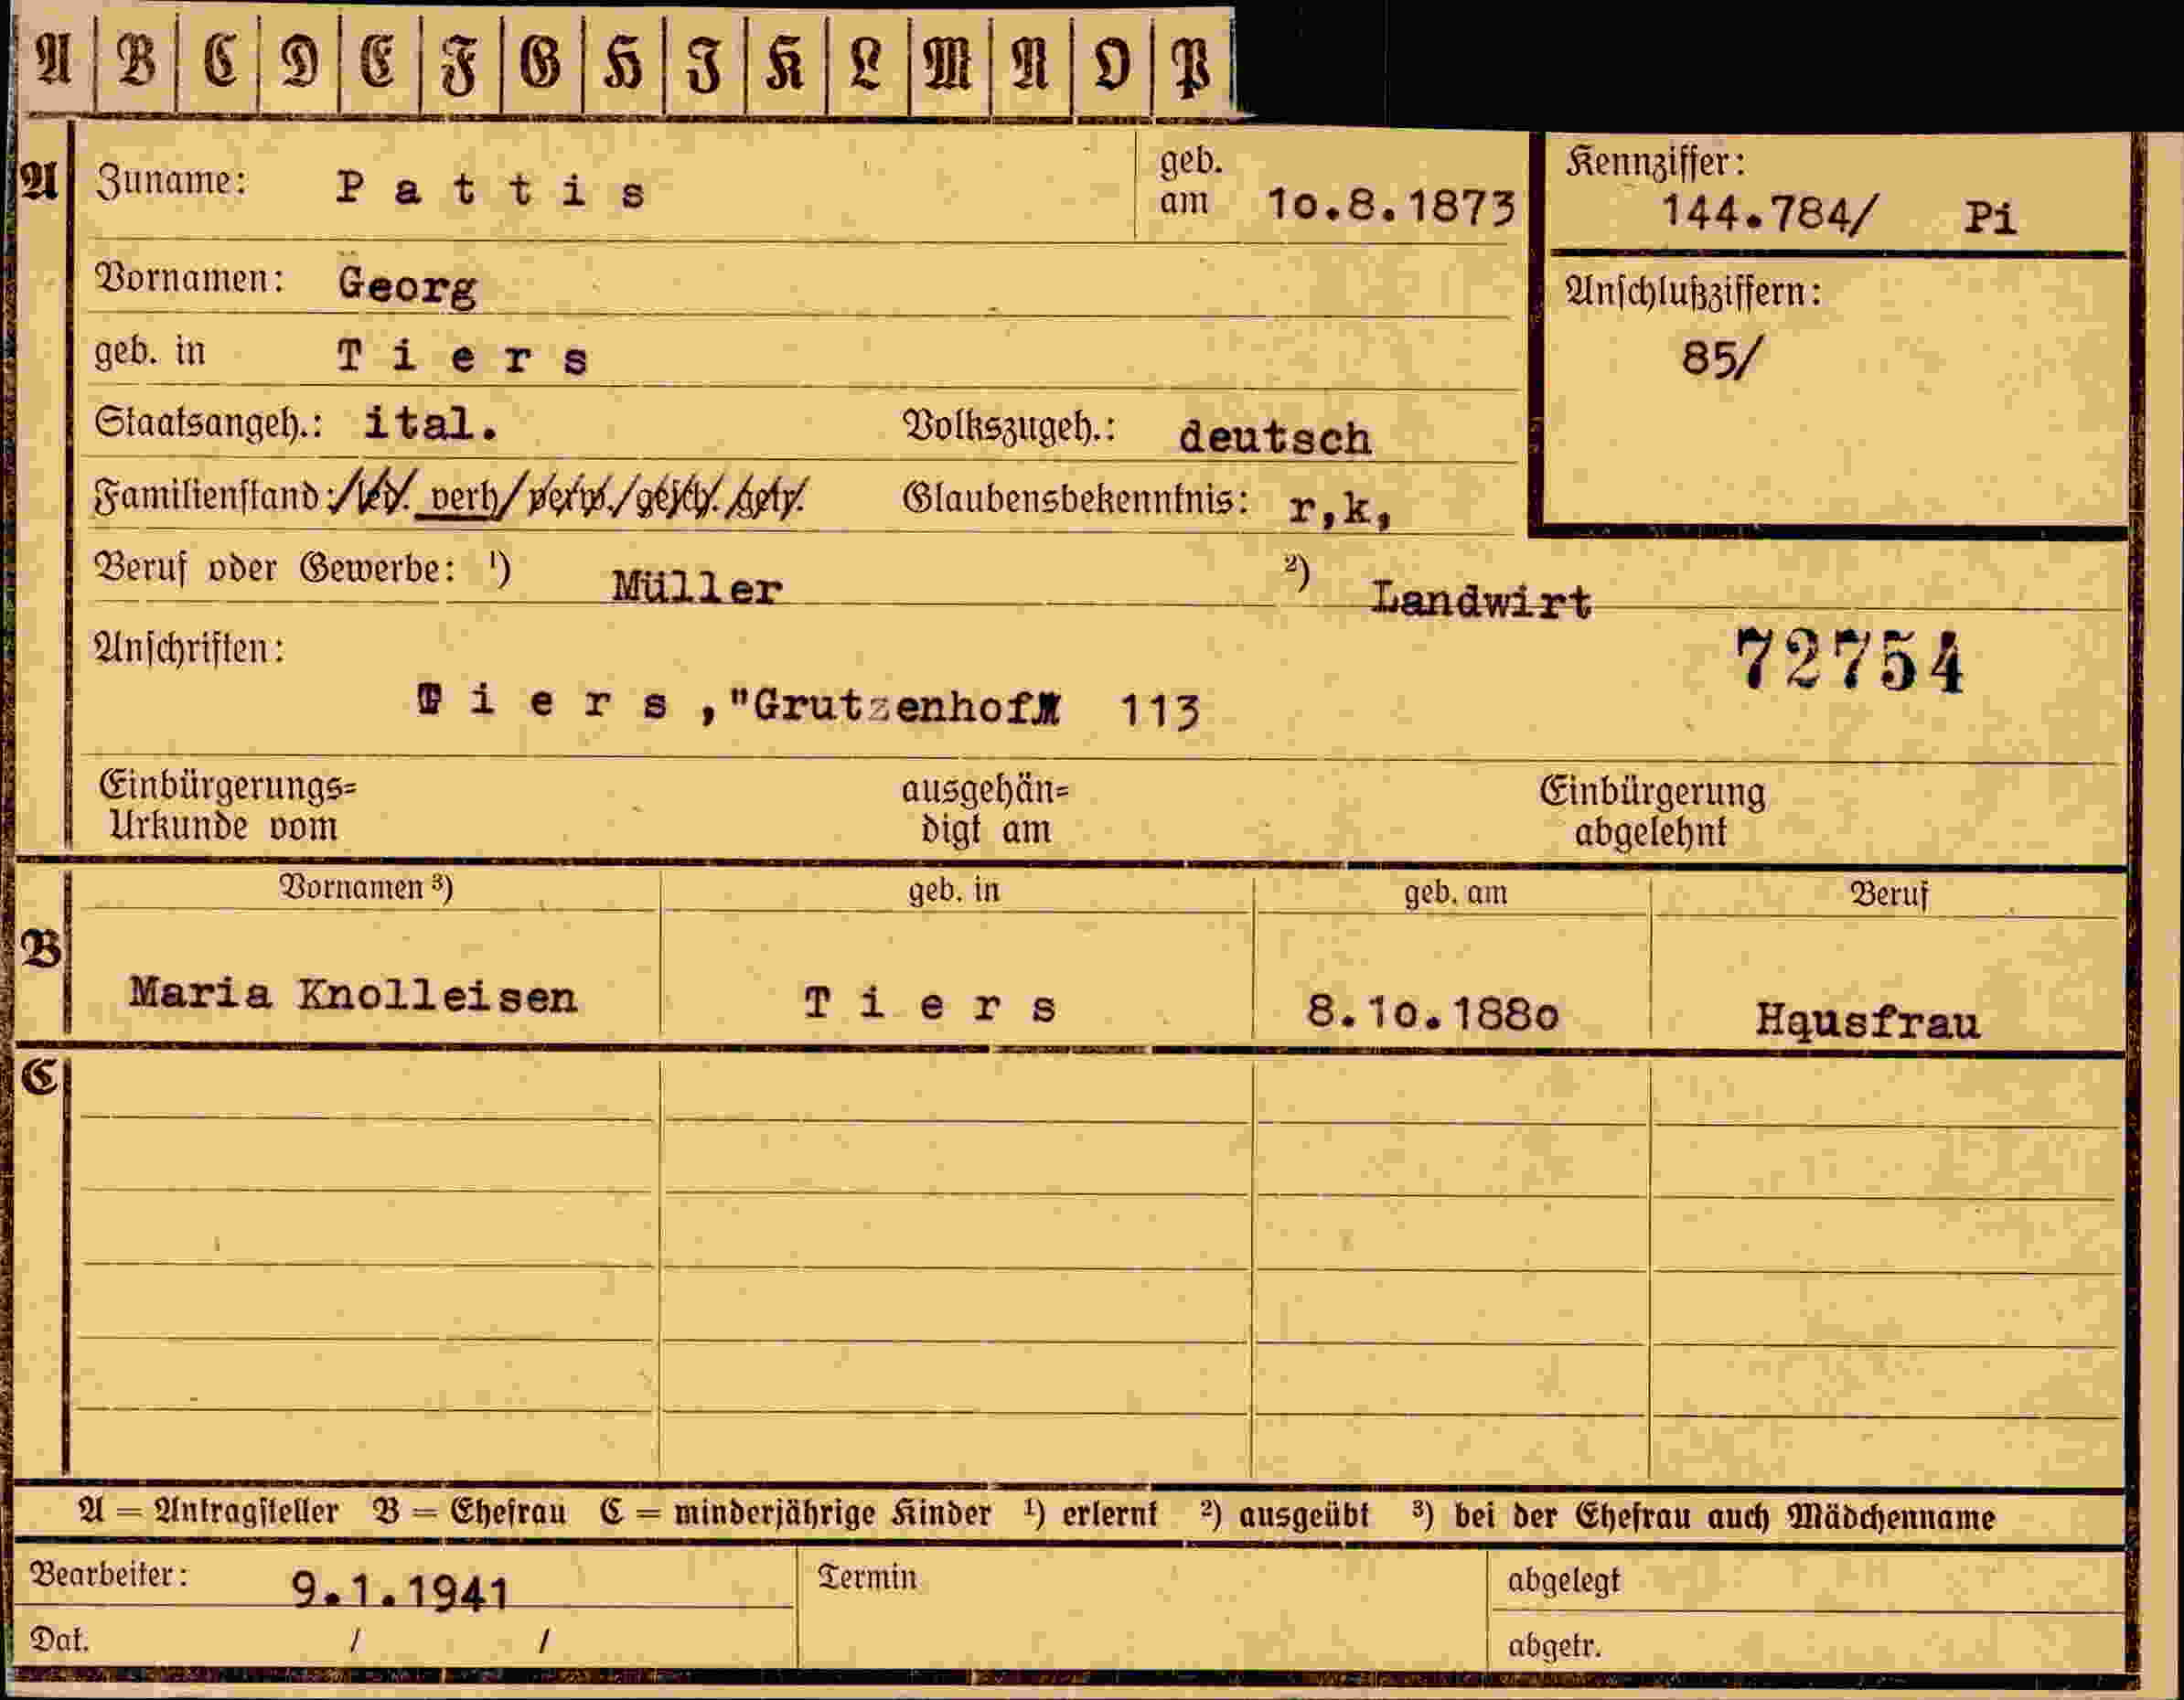 A B C D E F G H J K L M N O P
A Zuname: P a t t i s geb. am 1o.8.1873 Kennziffer: 144.784/ Pi
Vornamen: Georg
Anschlußziffern:
85/
geb. in T i e r s
Staatsangeh.: ital. Volkszugeh.: deutsch
Familienstand:/led. verh/verw./gesch./getr. Glaubensbekenntnis: r,k,
Beruf oder Gewerbe: ¹) Müller ²) Landwirt
Anschriften:
72754
T i e r s ,"Grutzenhof" 113
Einbürgerungs= ausgehän= Einbürgerung
Urkunde vom digt am abgelehnt
Vornamen ³) geb. in geb. am Beruf
B
Maria Knolleisen T i e r s 8.1o.188o Hqusfrau
C
A = Antragsteller B = Ehefrau C = minderjährige Kinder ¹) erlernt ²) ausgeübt ³) bei der Ehefrau auch Mädchenname
Bearbeiter: 9.1.1941 Termin abgelegt
Dat. / / abgetr.